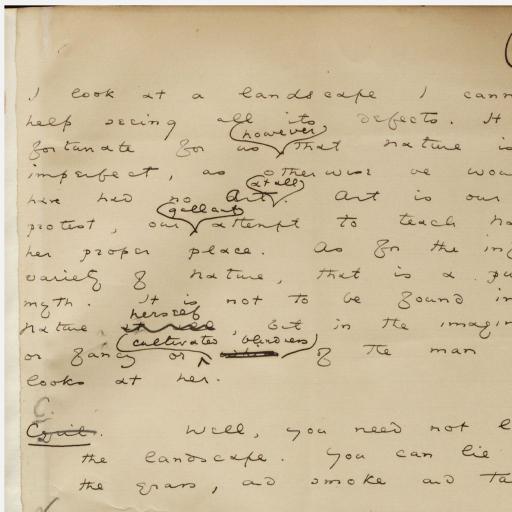 I look at a landscape I cann
help seeing all its defects. It
however
fortunate for us that nature is
imperfect, as otherwise we wou
at all
have had no Art. Art is our
gallant
protest, our attempt to teach Na
her proper place. As for the inf
variety of Nature, that is a pu
myth. It is not to be found in
herself
Nature at all, but in the imagin
cultivated blindness
or fancy or of the man
looks at her.
C.
Cyril. Well, you need not l
the landscape. You can lie
the grass, and smoke and ta